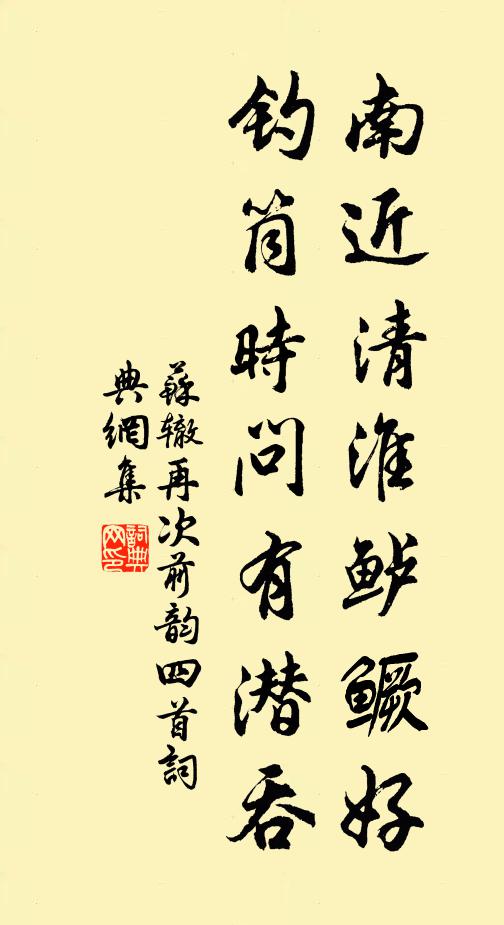 南近清淮鲈鳜好
钓筒時问有潜吞
蘇辙再次前韵四首詞
典網集
詞典
网印